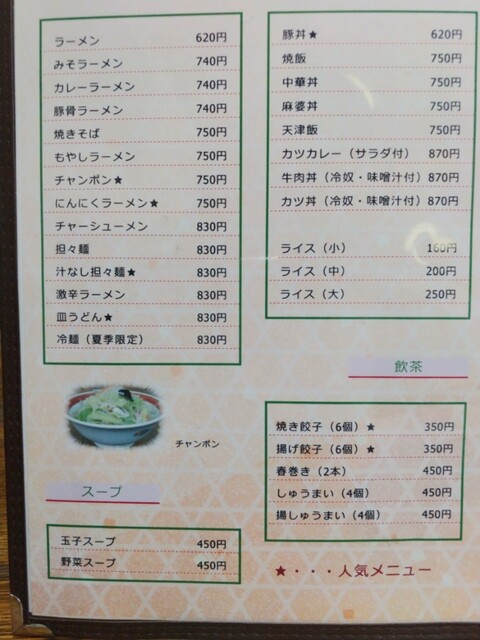 ラーメン 620円
みそラーメン 740円
カレーラーメン 740円
豚骨ラーメン 740円
焼きそば 750円
もやしラーメン 750円
チャンポン★ 750円
にんにくラーメン★ 750円
チャーシューメン 830円
担々麺 830円
汁なし担々麺★ 830円
激辛ラーメン 830円
皿うどん★ 830円
冷麺（夏季限定） 830円
チャンポン
スープ
玉子スープ 450円
野菜スープ 450円
豚丼★ 620円
焼飯 750円
中華丼 750円
麻婆丼 750円
天津飯 750円
カツカレー（サラダ付） 870円
牛肉丼（冷奴・味噌汁付） 870円
カツ丼（冷奴・味噌汁付） 870円
ライス（小） 160円
ライス（中） 200円
ライス（大） 250円
飲茶
焼き餃子（6個）★ 350円
揚げ餃子（6個）★ 350円
春巻き（2本） 450円
しゅうまい（4個） 450円
揚しゅうまい（4個） 450円
★・・・人気メニュー